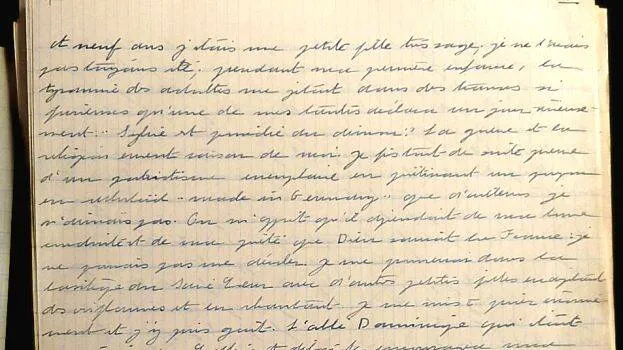 et neuf ans j'étais une petite fille très sage, je ne l'avais
pas toujours été ; pendant ma première enfance, la
tyrannie des adultes me jetait dans des transes si
furieuses qu'une de mes tantes déclara un jour sérieuse-
ment : "Sylvie est possédée du démon." La guerre et la
religion eurent raison de moi. Je fis tout de suite preuve
d'un patriotisme exemplaire en piétinant un poupon
en celluloïd "made in Germany" que d'ailleurs je
n'aimais pas. On m'apprit qu'il dépendait de ma bonne
conduite et de ma piété que Dieu sauvât la France : je
ne pouvais pas me dérober. Je me promenai dans la
basilique du Sacré Coeur avec d'autres petites filles en agitant
des oriflammes et en chantant. Je me mis à prier énormé-
ment et j'y pris goût. L'abbé Dominique qui était